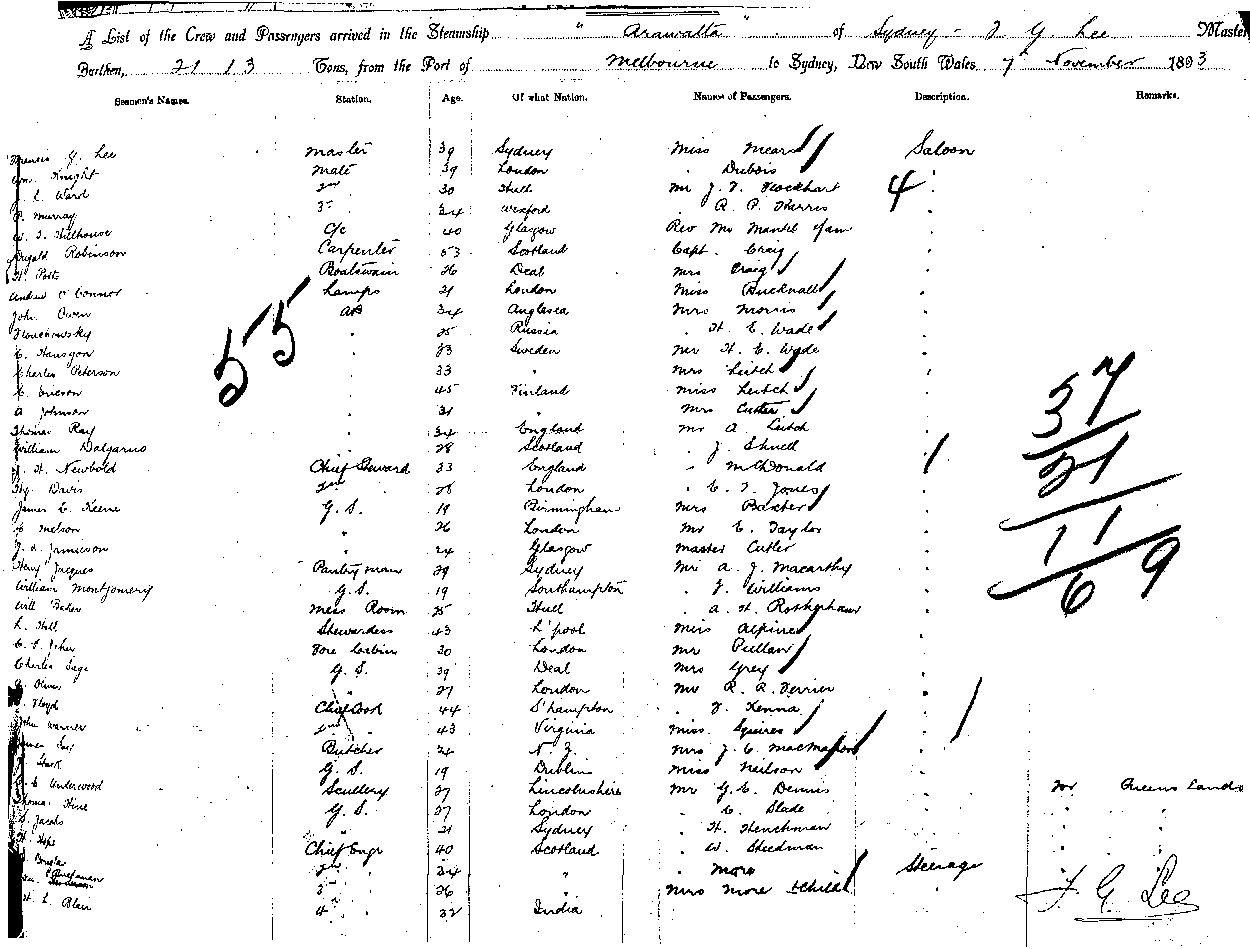 A List of the Crew and Passengers arrived in the Steamship " Arawatta " of Sydney - F G. Lee Master
Burthen, 2113 Tons, from the Port of Melbourne to Sydney, New South Wales, 7 November 1893
Seamen's Names. Station. Age. Of what Nation. Names of Passengers. Description. Remarks.
Francis G. Lee Master 39 Sydney Miss Mears Saloon
Wm. Knight Mate 39 London " Dubois "
L. Ward 2nd 30 Hull Mr J. F. Flockhart 4 "
P. Murray 3rd 34 Wexford " R. P. Harris "
W. J. Hillhouse C/c 40 Glasgow Rev Mr Mantel "
Dugald Robinson Carpenter 53 Scotland Capt. Craig "
H. Potts Boatswain 26 Deal Mrs Craig "
Andrew O'Connor Lamps 21 London Miss Bucknall "
John Owen AB 34 Anglesea Mrs Morris "
55
" 25 Russia " H. E. Wade "
C. Hansson " 23 Sweden Mr H. E. Wade "
Charles Peterson " 33 " Mrs Leitch "
C. Ericson " 45 Finland Miss Leitch "
A Johnson " 31 " Mrs Cutler "
Thomas Ray " 34 England Mr A. Leitch "
William Dalgarno " 28 Scotland " J. Shnell "
H. Newbold Chief Steward 33 England " McDonald "
Hy. Davis 2nd 28 London " C. F. Jones "
James C. Keene G. S. 19 Birmingham Mrs Baxter "
Nelson " 26 London Mr C. Taylor "
J. A. Jamieson " 24 Glasgow Master Cutler "
37
21
11
69
Henry Jacques Pantryman 29 Sydney Mr A. J. Macarthy "
William Montgomery G. S. 19 Southampton " J. Williams "
Will Baker Mess Room 25 Hull " A. H. Rotherham "
L. Hall Stewardess 43 L'pool Miss Alpine "
Fore Cabin 20 London Mr Pullar "
Charles Sage G. S. 39 Deal Mrs Grey "
Oliver " 27 London Mr R. R. Terrier "
Floyd Chief Cook 44 S'hampton " J. Kenna "
John Warner 2nd 43 Virginia Miss Squires "
Butcher 24 N. Z. Mrs J. C. MacMahon "
Stark G. S. 19 Dublin Miss Neilson "
C. Underwood Scullery 27 Lincolnshire Mr G. C. Dennis " For Queensland
Thomas Hine G. S. 27 London " C. Slade " "
Jacobs " 21 Sydney " H. Henchman " "
H. Hope Chief Engr 40 Scotland " W. Steedman " "
Douglas 2nd 34 " " More Steerage "
Buchanan
Anderson 3rd 26 " Mrs More & Child "
H. L. Blair 4th 32 India
F. G. Lee